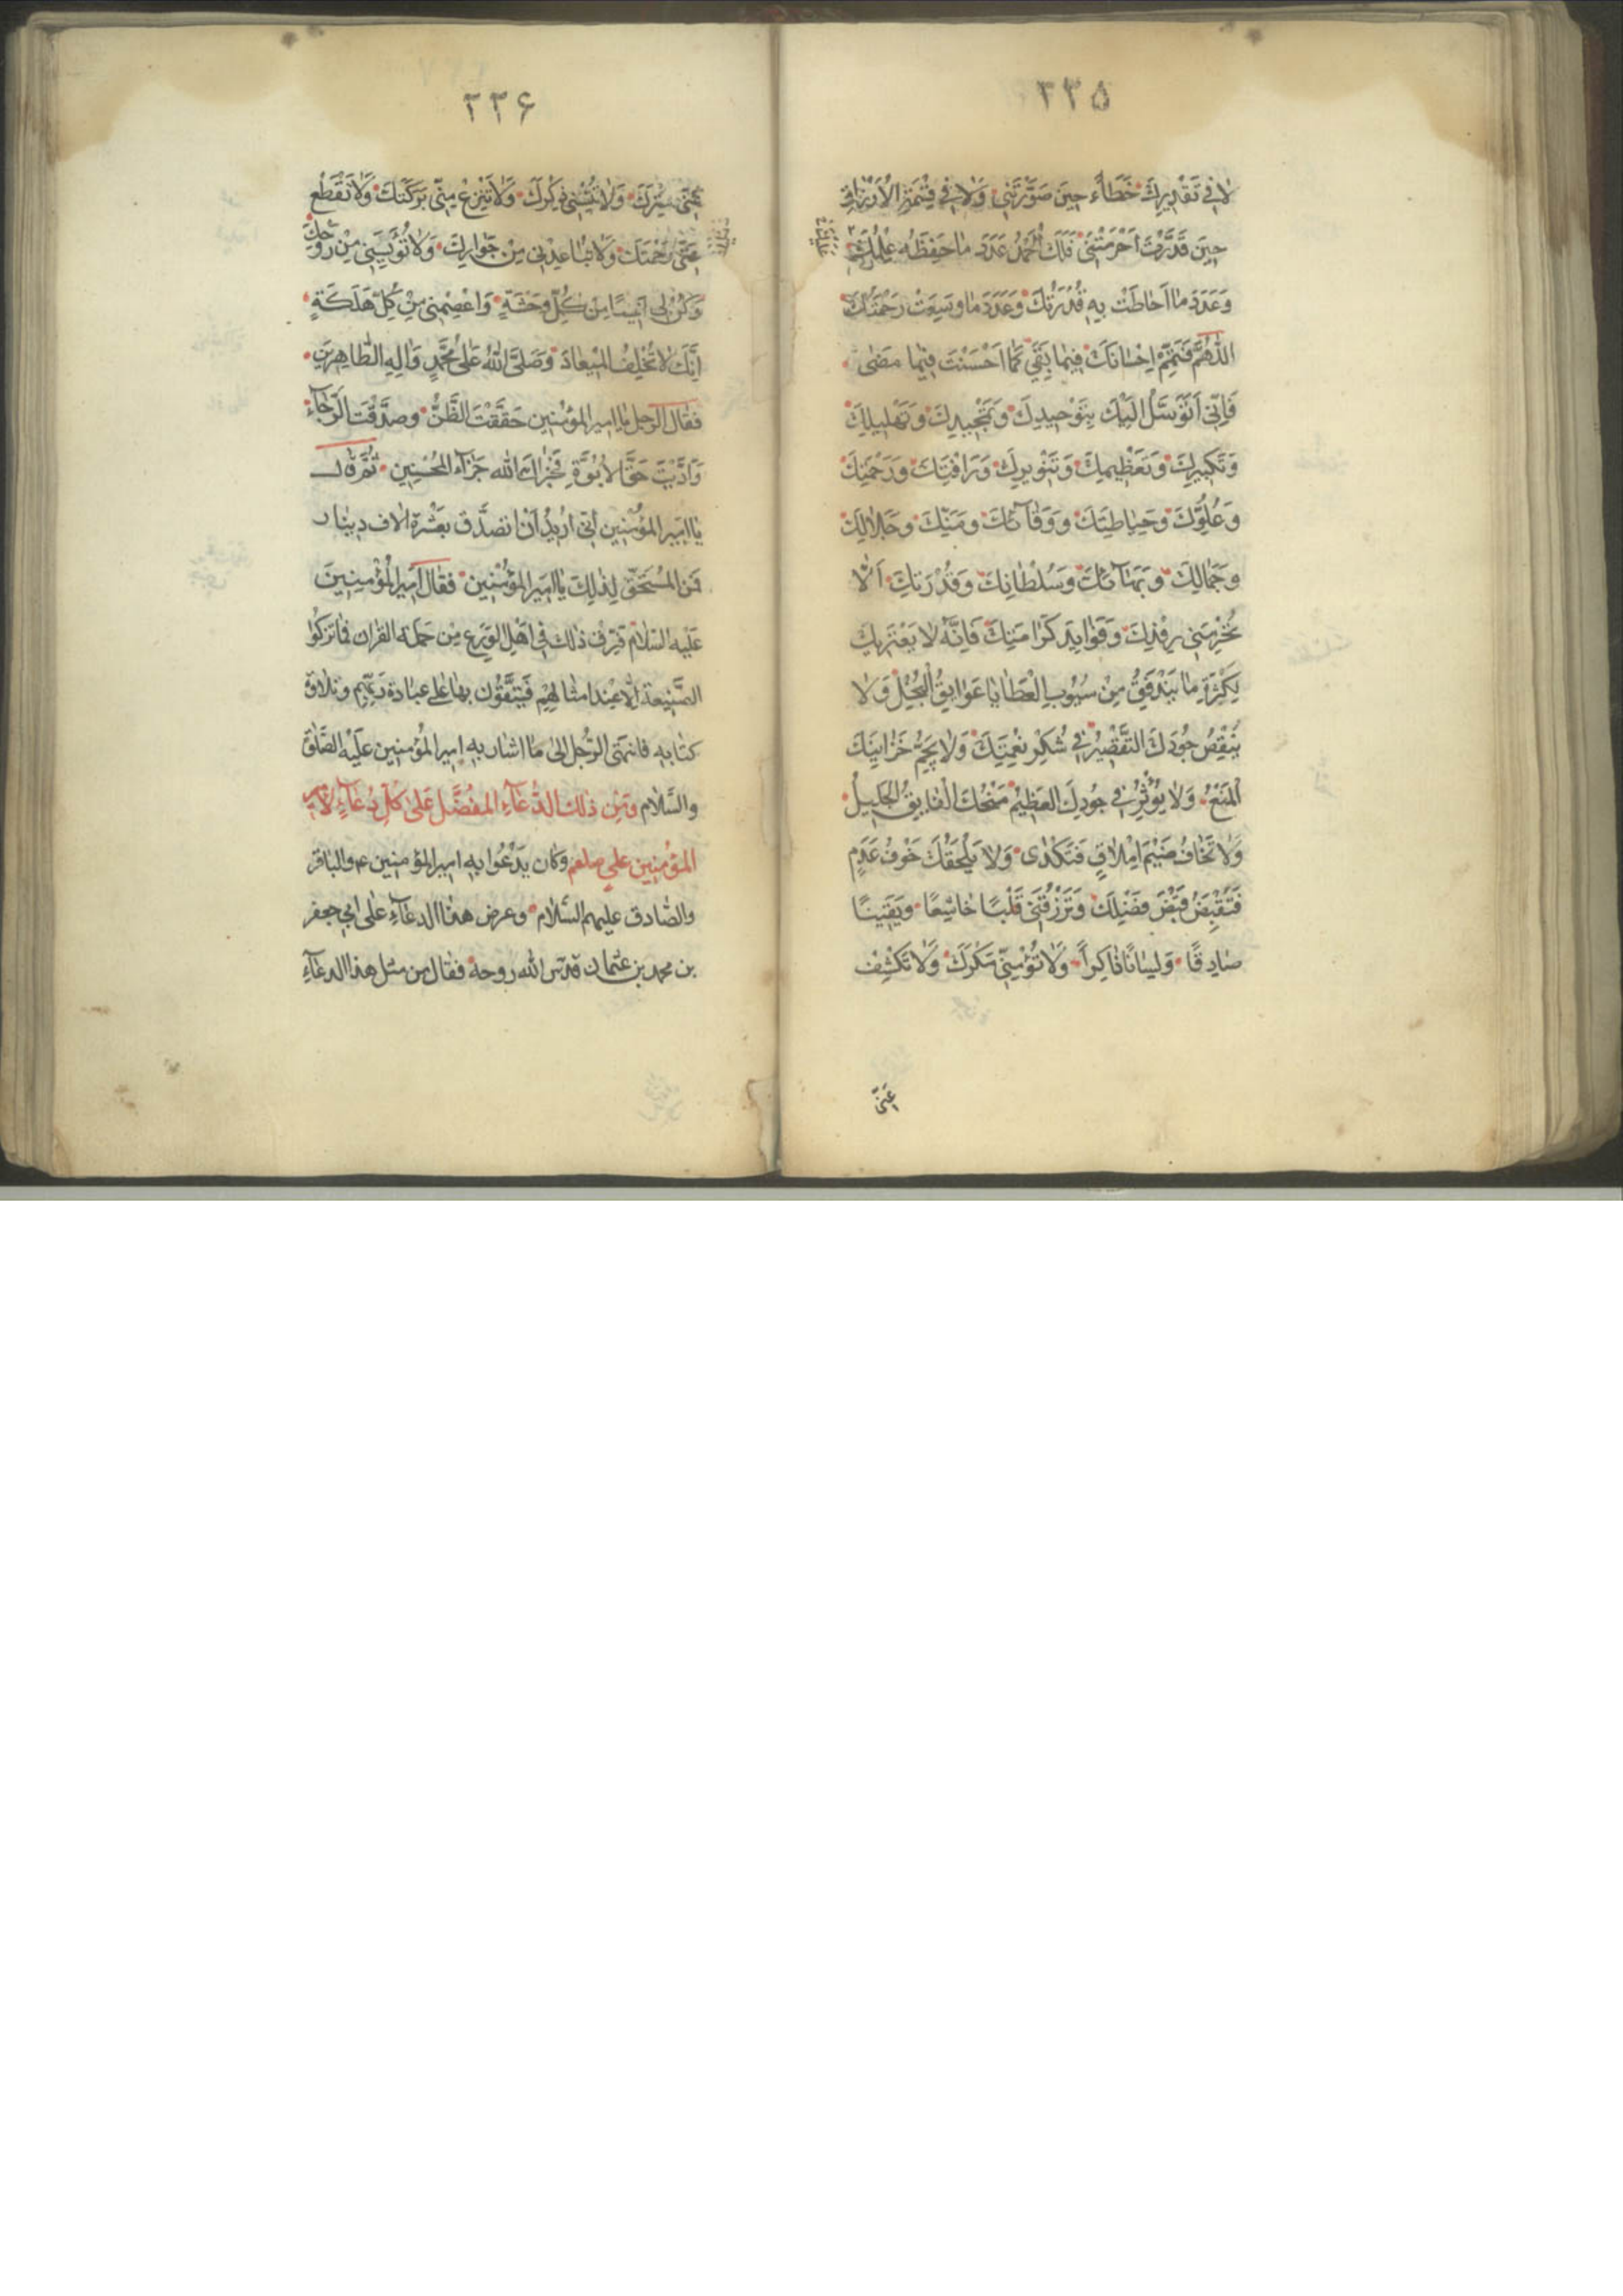 ٣٣۵
لا في تَقْدِيرِكَ خَطَاءً حِينَ صَوَّرْتَنِي وَلا فِي قِسْمَةِ الْاَرْزاقِ
حِينَ قَدَّرْتَ اَحْرَمْتَنِي فَلَكَ الْحَمْدُ عَدَدَ مٰا حَفِظَهُ عِلْمُكَ
وَعَدَدَ مٰا اَحٰاطَتْ بِهِ قُدْرَتُكَ وَعَدَدَ مٰا وَسِعَتْ رَحْمَتُكَ
اَللّٰهُمَّ فَتَمِّمْ اِحْسٰانَكَ فِيمٰا بَقِيَ كَمٰا اَحْسَنْتَ فِيمٰا مَضٰى
فَاِنّي اَتَوَسَّلُ اِلَيْكَ بِتَوْحِيدِكَ وَتَمْجِيدِكَ وَتَهْلِيلِكَ
وَتَكْبِيرِكَ وَتَعْظِيمِكَ وَتَنْوِيرِكَ وَرَافَتِكَ وَرَحْمَتِكَ
وَعُلُوِّكَ وَحِيٰاطَتِكَ وَوَقٰائِكَ وَمَنِّكَ وَجَلاٰلِكَ
وَجَمٰالِكَ وَبَهٰائِكَ وَسُلْطٰانِكَ وَقُدْرَتِكَ اَلّٰا
تَحْرِمَنِي رِفْدَكَ وَفَوٰايِدَ كَرٰامَتِكَ فَاِنَّهُ لاٰ يَعْتَرِيكَ
لِكَثْرَةِ مٰا يَنْدَفِقُ مِنْ سُيُوبِ الْعَطٰايٰا عَوٰايِقُ الْبُخْلِ وَلاٰ
يَنْقِصُ جُودَكَ التَّقْصِيرُ فِي شُكْرِ نِعْمَتِكَ وَلاٰ يَجُمُّ خَزٰايِنَكَ
الْمَنْعُ وَلاٰ يُؤَثِّرُ فِي جُودِكَ الْعَظِيمِ مِنَحُكَ الْفٰايِقُ الْجَلِيلُ
وَلاٰ تَخٰافُ ضَيْمَ اِمْلاٰقٍ فَتُكْدٰى وَلاٰ يَلْحَقُكَ خَوْفُ عَدَمٍ
فَتَقْبِضَ فَيْضَ فَضْلِكَ وَتَرْزُقَنِي قَلْبًا خٰاشِعًا وَيَقِينًا
صٰادِقًا وَلِسٰانًا ذٰاكِراً وَلاٰ تُؤْمِنِّي مَكْرَكَ وَلاٰ تَكْشِفْ
عَنّي
٣٣۶
عَنّي سِتْرَكَ وَلاٰ تُنْسِنِي ذِكْرَكَ وَلاٰ تَنْزِعْ مِنّي بَرَكَتَكَ وَلاٰ تَقْطَعْ
عَنّي رَحْمَتَكَ وَلاٰ تُبٰاعِدْنِي مِنْ جِوٰارِكَ وَلاٰ تُؤْيِسْنِي مِنْ رَوْحِكَ
وَكُنْ لِي اَنِيسًا مِنْ كُلِّ وَحْشَةٍ وَاعْصِمْنِي مِنْ كُلِّ هَلَكَةٍ
اِنَّكَ لاٰ تُخْلِفُ الْمِيعٰادَ وَصَلَّى اللّٰهُ عَلٰى مُحَمَّدٍ وَاٰلِهِ الطّٰاهِرِينَ
فقٰال الرجل يٰا امير المؤمنين حَقَّقْتَ الظَّنَّ وصدَّقْتَ الرَّجٰاءَ
وَاَدَّيْتَ حَقَّ الاُبُوَّةِ فَجَزٰاكَ اللّٰه جَزٰاءَ المُحْسِنِين ثُمَّ قٰال
يٰا امير المؤمنين اني اُريدُ اَنْ اَتصَدَّقَ بعَشْرَةِ الاٰف دينٰار
فَمن المُسْتَحَقّ لِذٰلِكَ يٰا امير المؤمنين فقٰال اَمِير الْمُؤْمِنِينَ
عَليْه السّلاٰم فَرِّق ذٰلك فِي اَهْلِ الوَرَع مِن حَملة القرٰان فمٰا تزكُوا
الصَّنِيعة الّا عِند امثٰالهِم فيَتقَوّون بهٰا على عبٰادة رَبِّهِم وتلاٰوة
كتٰابِه فانتهَى الرّجُل الىٰ مٰا اشٰار به امير المُؤمنين عَليْه الصَّلوٰة
والسَّلاٰم وَمِن ذٰلك الدُّعٰاء المُفضَّل عَلىٰ كلِّ دُعٰاءٍ لاَمير
المؤمنين علي صلعم وكٰان يَدْعُوا به امير المؤمنين ع والبٰاقر
والصّٰادق عليهم السّلاٰم وعرض هذا الدعٰاء علىٰ ابي جعفر
بن محمد بن عثمان قدس الله روحه فقال من مثل هذا الدعٰاء